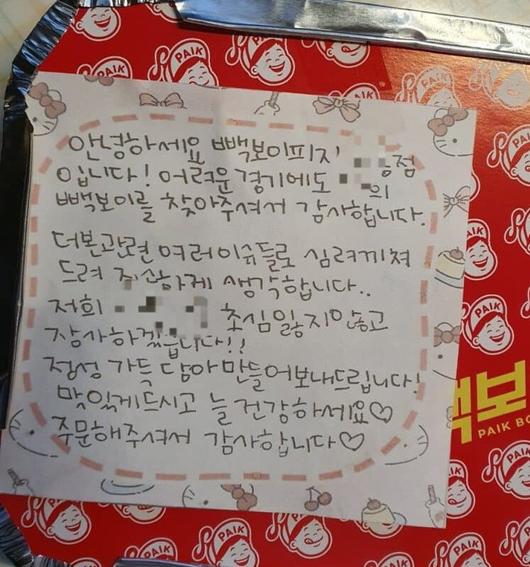 안녕하세요 빽보이피자 점
입니다! 어려운경기에도 의
빽보이를 찾아주셔서 감사합니다.
더본관련 여러이슈들로 심려끼쳐
드려 죄산하게 생각합니다..
저희 초심잃지않고
장사하겠습니다!!
정성 가득 담아만들어보내드립니다!
맛있게드시고 늘 건강하세요♡
주문해주셔서 감사합니다♡
PAIK
PAIK
PAIK
PAIK
PAIK
PAIK
PAIK
백보
PAIK BO
PAIK
PAIK
PAIK
PAIK